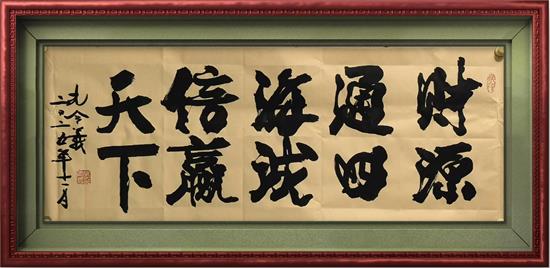 财源
通四
海诚
信赢
天下
令義
二〇一五年十一月